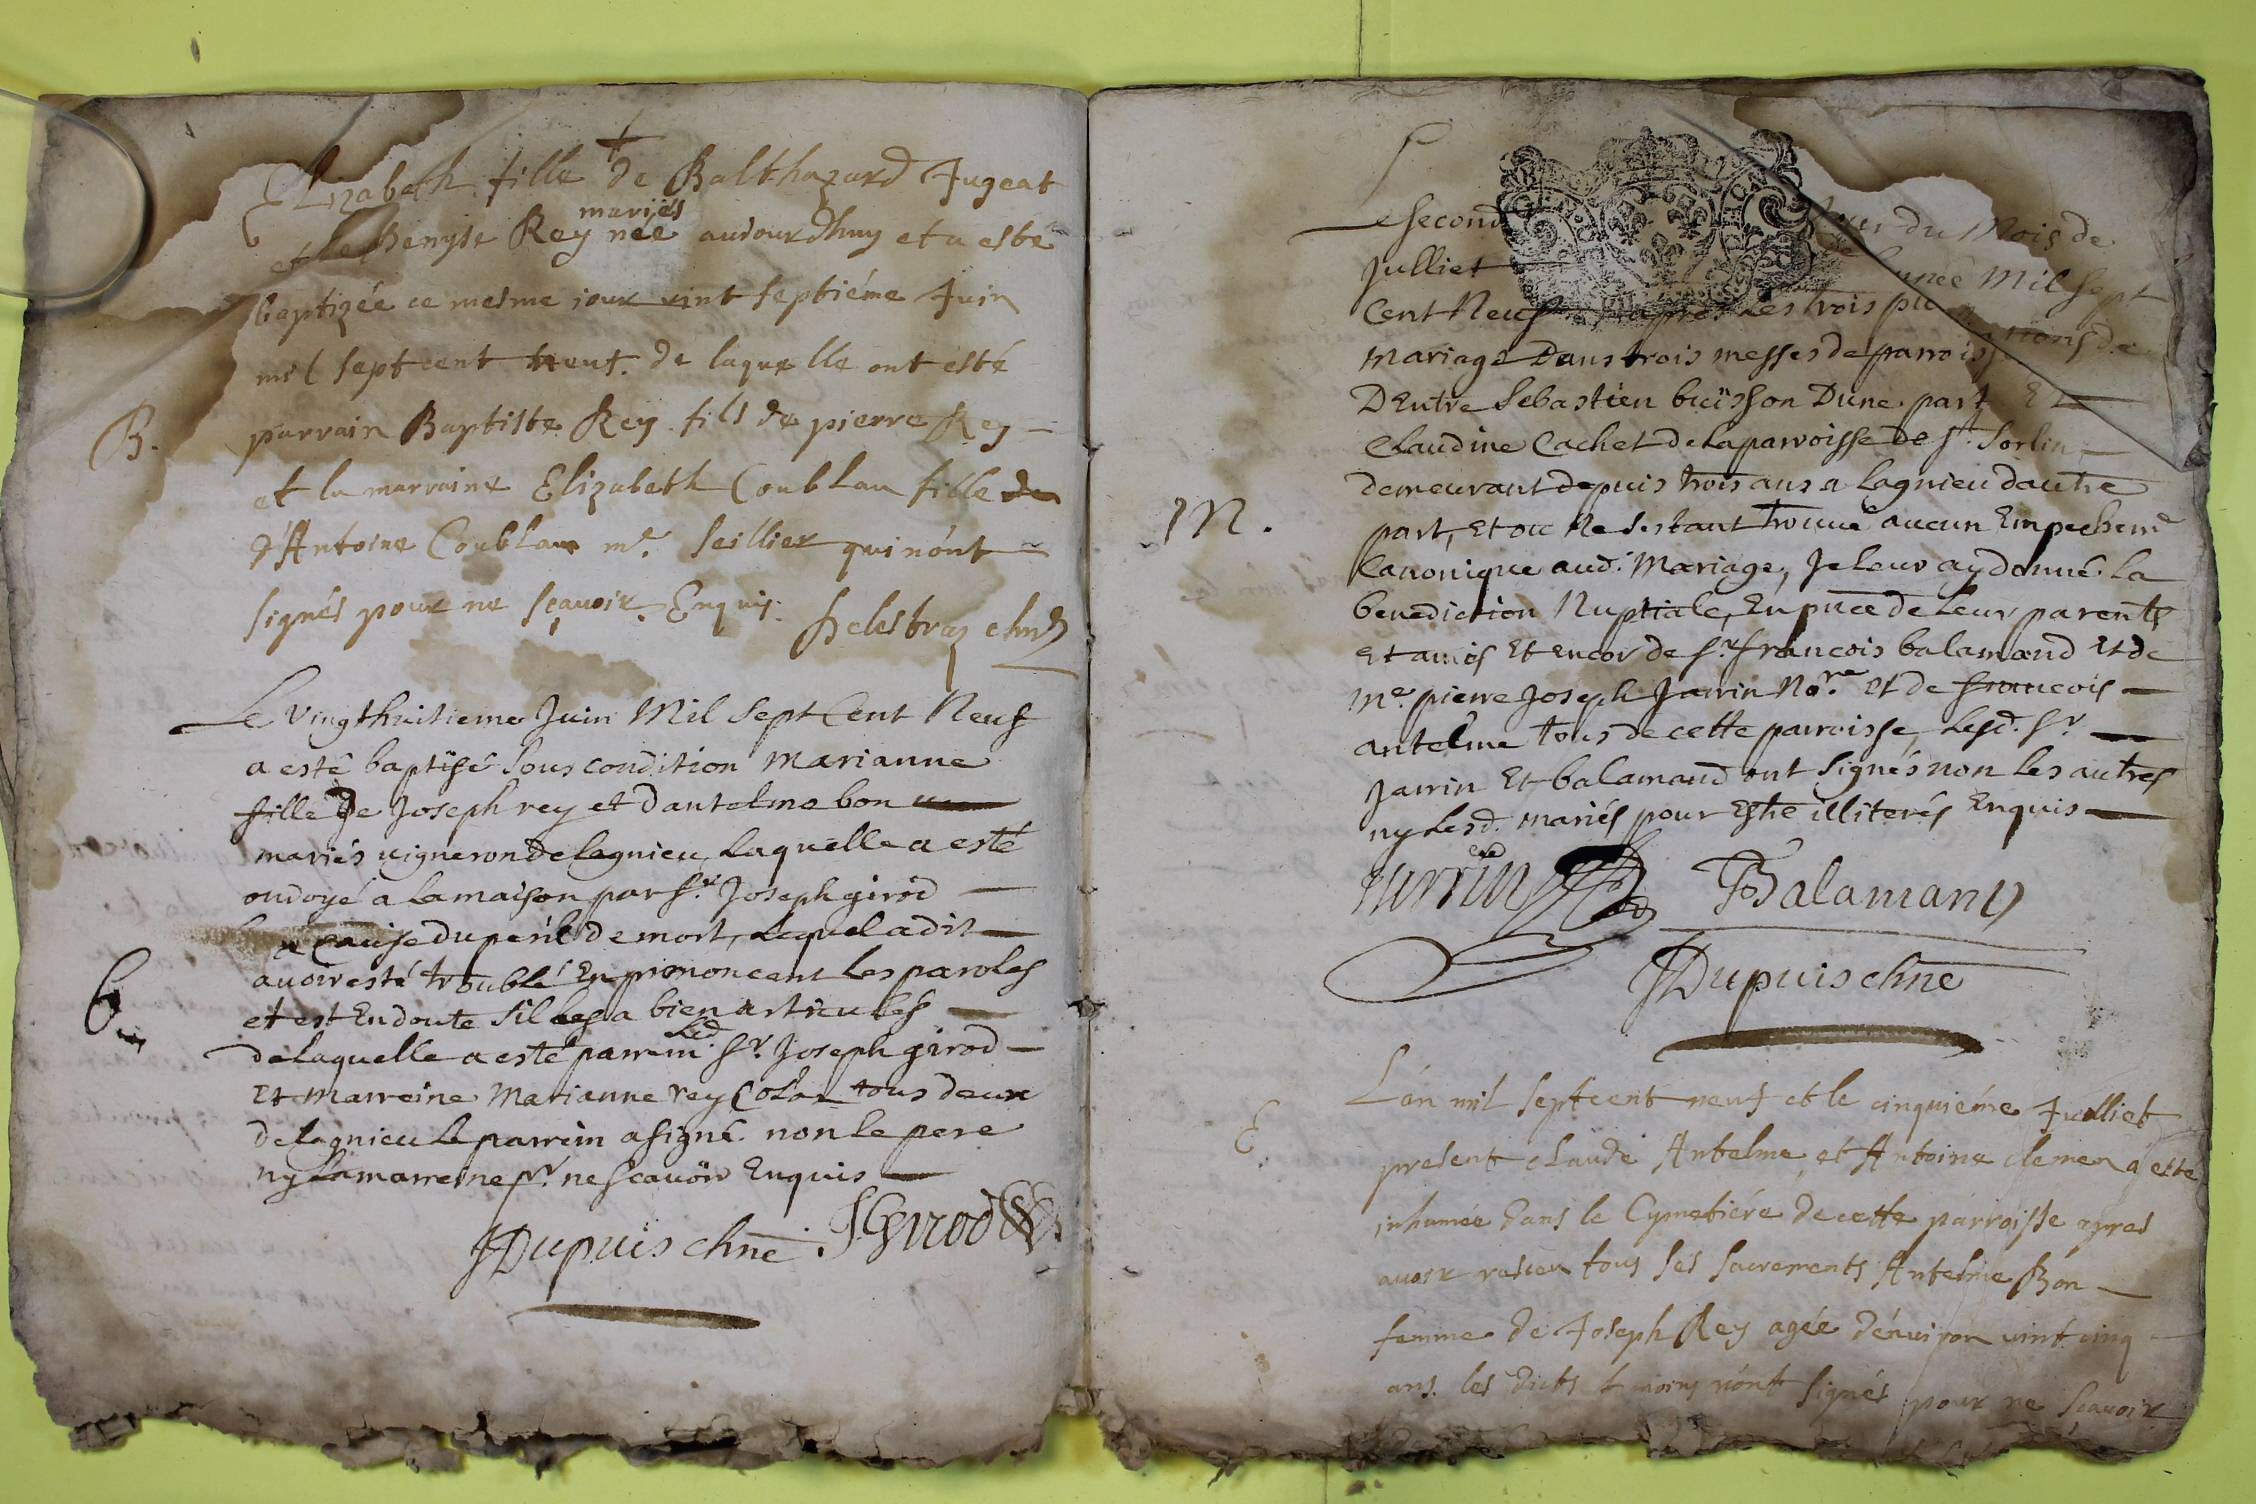 Elizabeth fille de Balthazard Jugeat
mariés
et de Benyste Rey née aujourdhuy et a esté
baptizée ce mesme jour vint septiéme Juin
mil septcent neuf. de laquelle ont esté
B.
parrain Baptiste Rey fils de pierre Rey
et la marraine Elizabeth Coublan fille
d'Antoine Coublan me. seillier qui n'ont
signés pour ne sçavoir Enquis.
Le vingthuitieme Juin Mil Sept Cent Neuf
a esté baptisé sous condition Marianne
fille de Joseph rey et dantelme bon
mariés vigneron de lagnieu Laquelle a esté
ondoyé a la maison par Sr. Joseph girod
a Cause du peril de mort, Lequel a dit
avoir esté troublé En prononcent Les paroles
B
et est En doute sil les a bien articulés
Led
de laquelle a esté parrein Sr. Joseph girod
Et marreine Marianne rey tous deux
de lagnieu le parrein a signé non le pere
ny La marreine pr. ne scavoir Enquis
JDupuis chne J Girod
Le second Jour du Mois de
Julliet de Lannée Mil Sept
Cent Neuf apres Les trois
mariage Dans trois messes de parroisse
D'Entre Sebastien buisson Dune part Et
Claudine Cachet de la parroisse de St. Sorlin
demeurant depuis trois ans a Lagnieu dautre
M.
part, Et ou Ne sestant trouvé aucun Empechemt
Canonique aud. Mariage, Je Leur ay donné La
benediction Nuptiale, En pnce de Leur parents
Et amis Et Encor de Sr. francois balamand Et de
Me. pierre Joseph Jarrin Nore Et de francois
antelme tous de cette parroisse, Lesd. Sr
Jarrin Et balamand ont Signés non Les autres
ny Lesd. mariés pour Estre illiterés Enquis
Jarrin Balamand
JDupuis chne
L'an mil septcent neuf et le cinquiéme Julliet
E.
present claude Antelme et Antoine clemen a esté
inhumée dans le Cymetiére de cette parroisse apres
avoir receu tous ses sacrements Antelme Bon
femme de Joseph Rey agée d'environ vint cinq
ans. les dicts temoins n'ont signés pour ne sçavoir